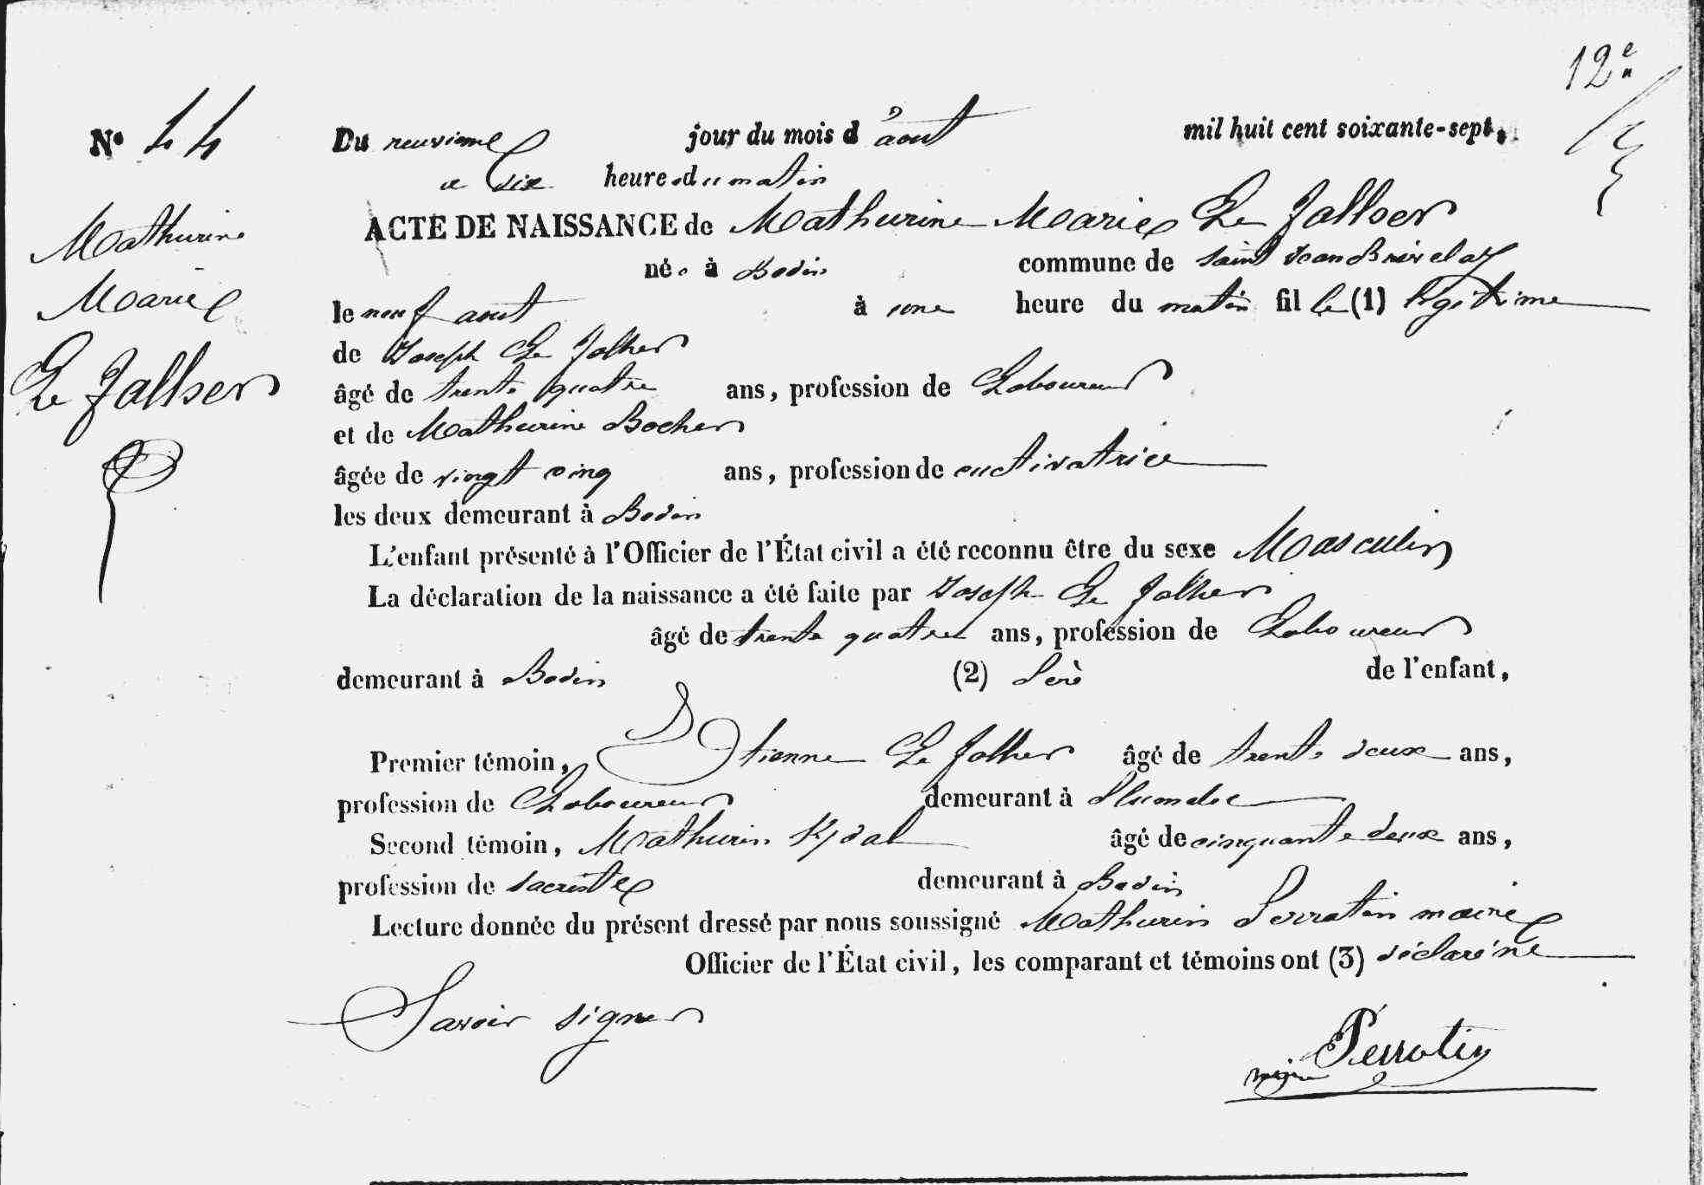 12e
N° 44
Du neuvieme jour du mois d'aout mil huit cent soixante-sept,
a six heures du matin
Mathurine
Marie
Le Jallser
ACTE DE NAISSANCE de Mathurine Marie Le Jallser
née à Bodin commune de Saint Jean Brévelay
le neuf aout à une heure du matin fille (1) légitime
de Joseph Le Jolher
âgé de trente quatre ans, profession de Laboureur
et de Mathurine Bocher
âgée de vingt cinq ans, profession de cuctivatrice
les deux demeurant à Bodin
L'enfant présenté à l'Officier de l'État civil a été reconnu être du sexe Masculin
La déclaration de la naissance a été faite par Joseph Le Jolher
âgé de trente quatre ans, profession de Laboureur
demeurant à Bodin (2) Père de l'enfant,
Premier témoin, Etienne Le Jolher âgé de trente deux ans,
profession de Laboureur demeurant à Plumelec
Second témoin, Mathurin âgé de cinquante deux ans,
profession de sacriste demeurant à Bodin
Lecture donnée du présent dressé par nous soussigné Mathurin Perrotin maire
Officier de l'État civil, les comparant et témoins ont (3) déclaré ne
Savoir signer
Perrotin
maire